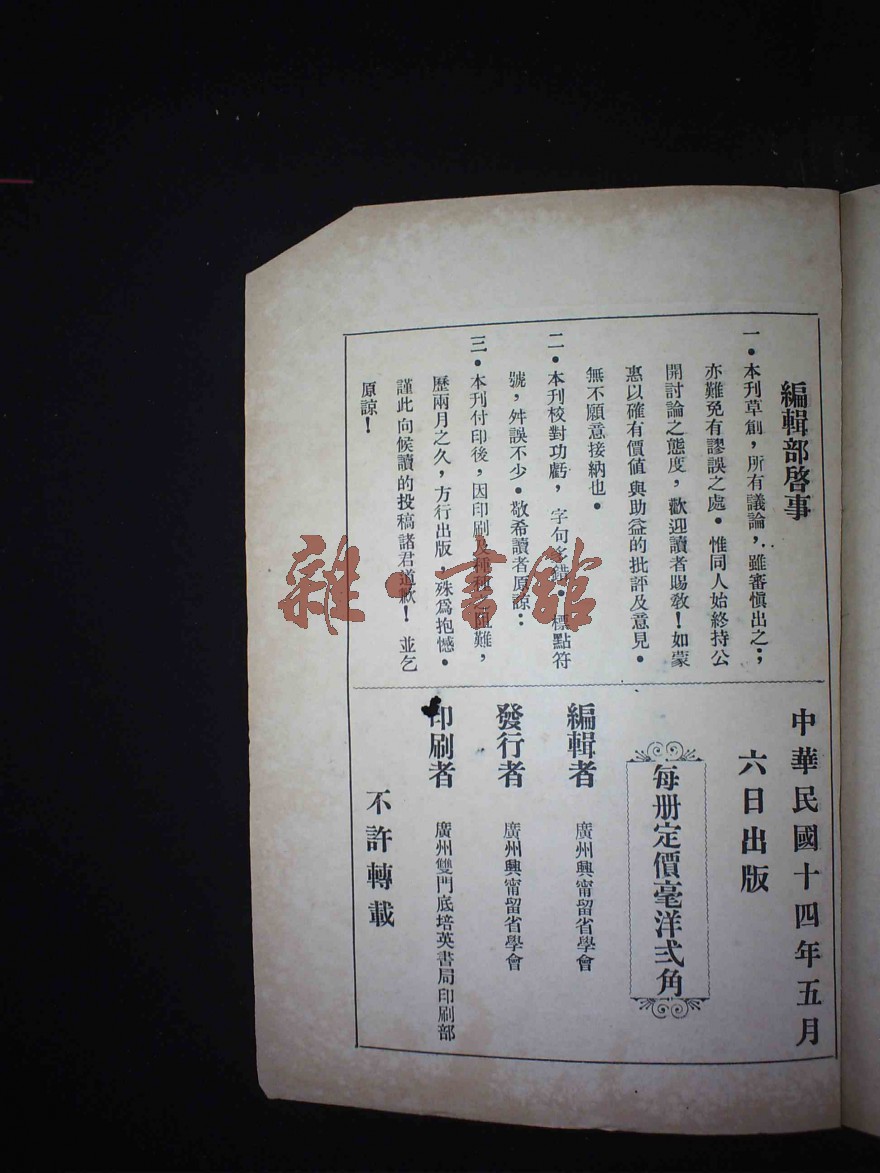 編輯部啓事
一・本刊草創，所有議論，雖審愼出之；
亦難免有謬誤之處・惟同人始終持公
開討論之態度，歡迎讀者賜敎！如蒙
惠以確有價値與助益的批評及意見・
無不願意接納也・
二・本刊校對功虧，字句多錯・標點符
號，舛誤不少・敬希讀者原諒：
三・本刊付印後，因印刷及種種困難，
歷兩月之久，方行出版，殊爲抱憾・
謹此向候讀的投稿諸君道歉！並乞
原諒！
中華民國十四年五月
六日出版
每册定價毫洋弍角
編輯者 廣州興甯留省學會
發行者 廣州興甯留省學會
印刷者 廣州雙門底培英書局印刷部
不許轉載
雜・書館